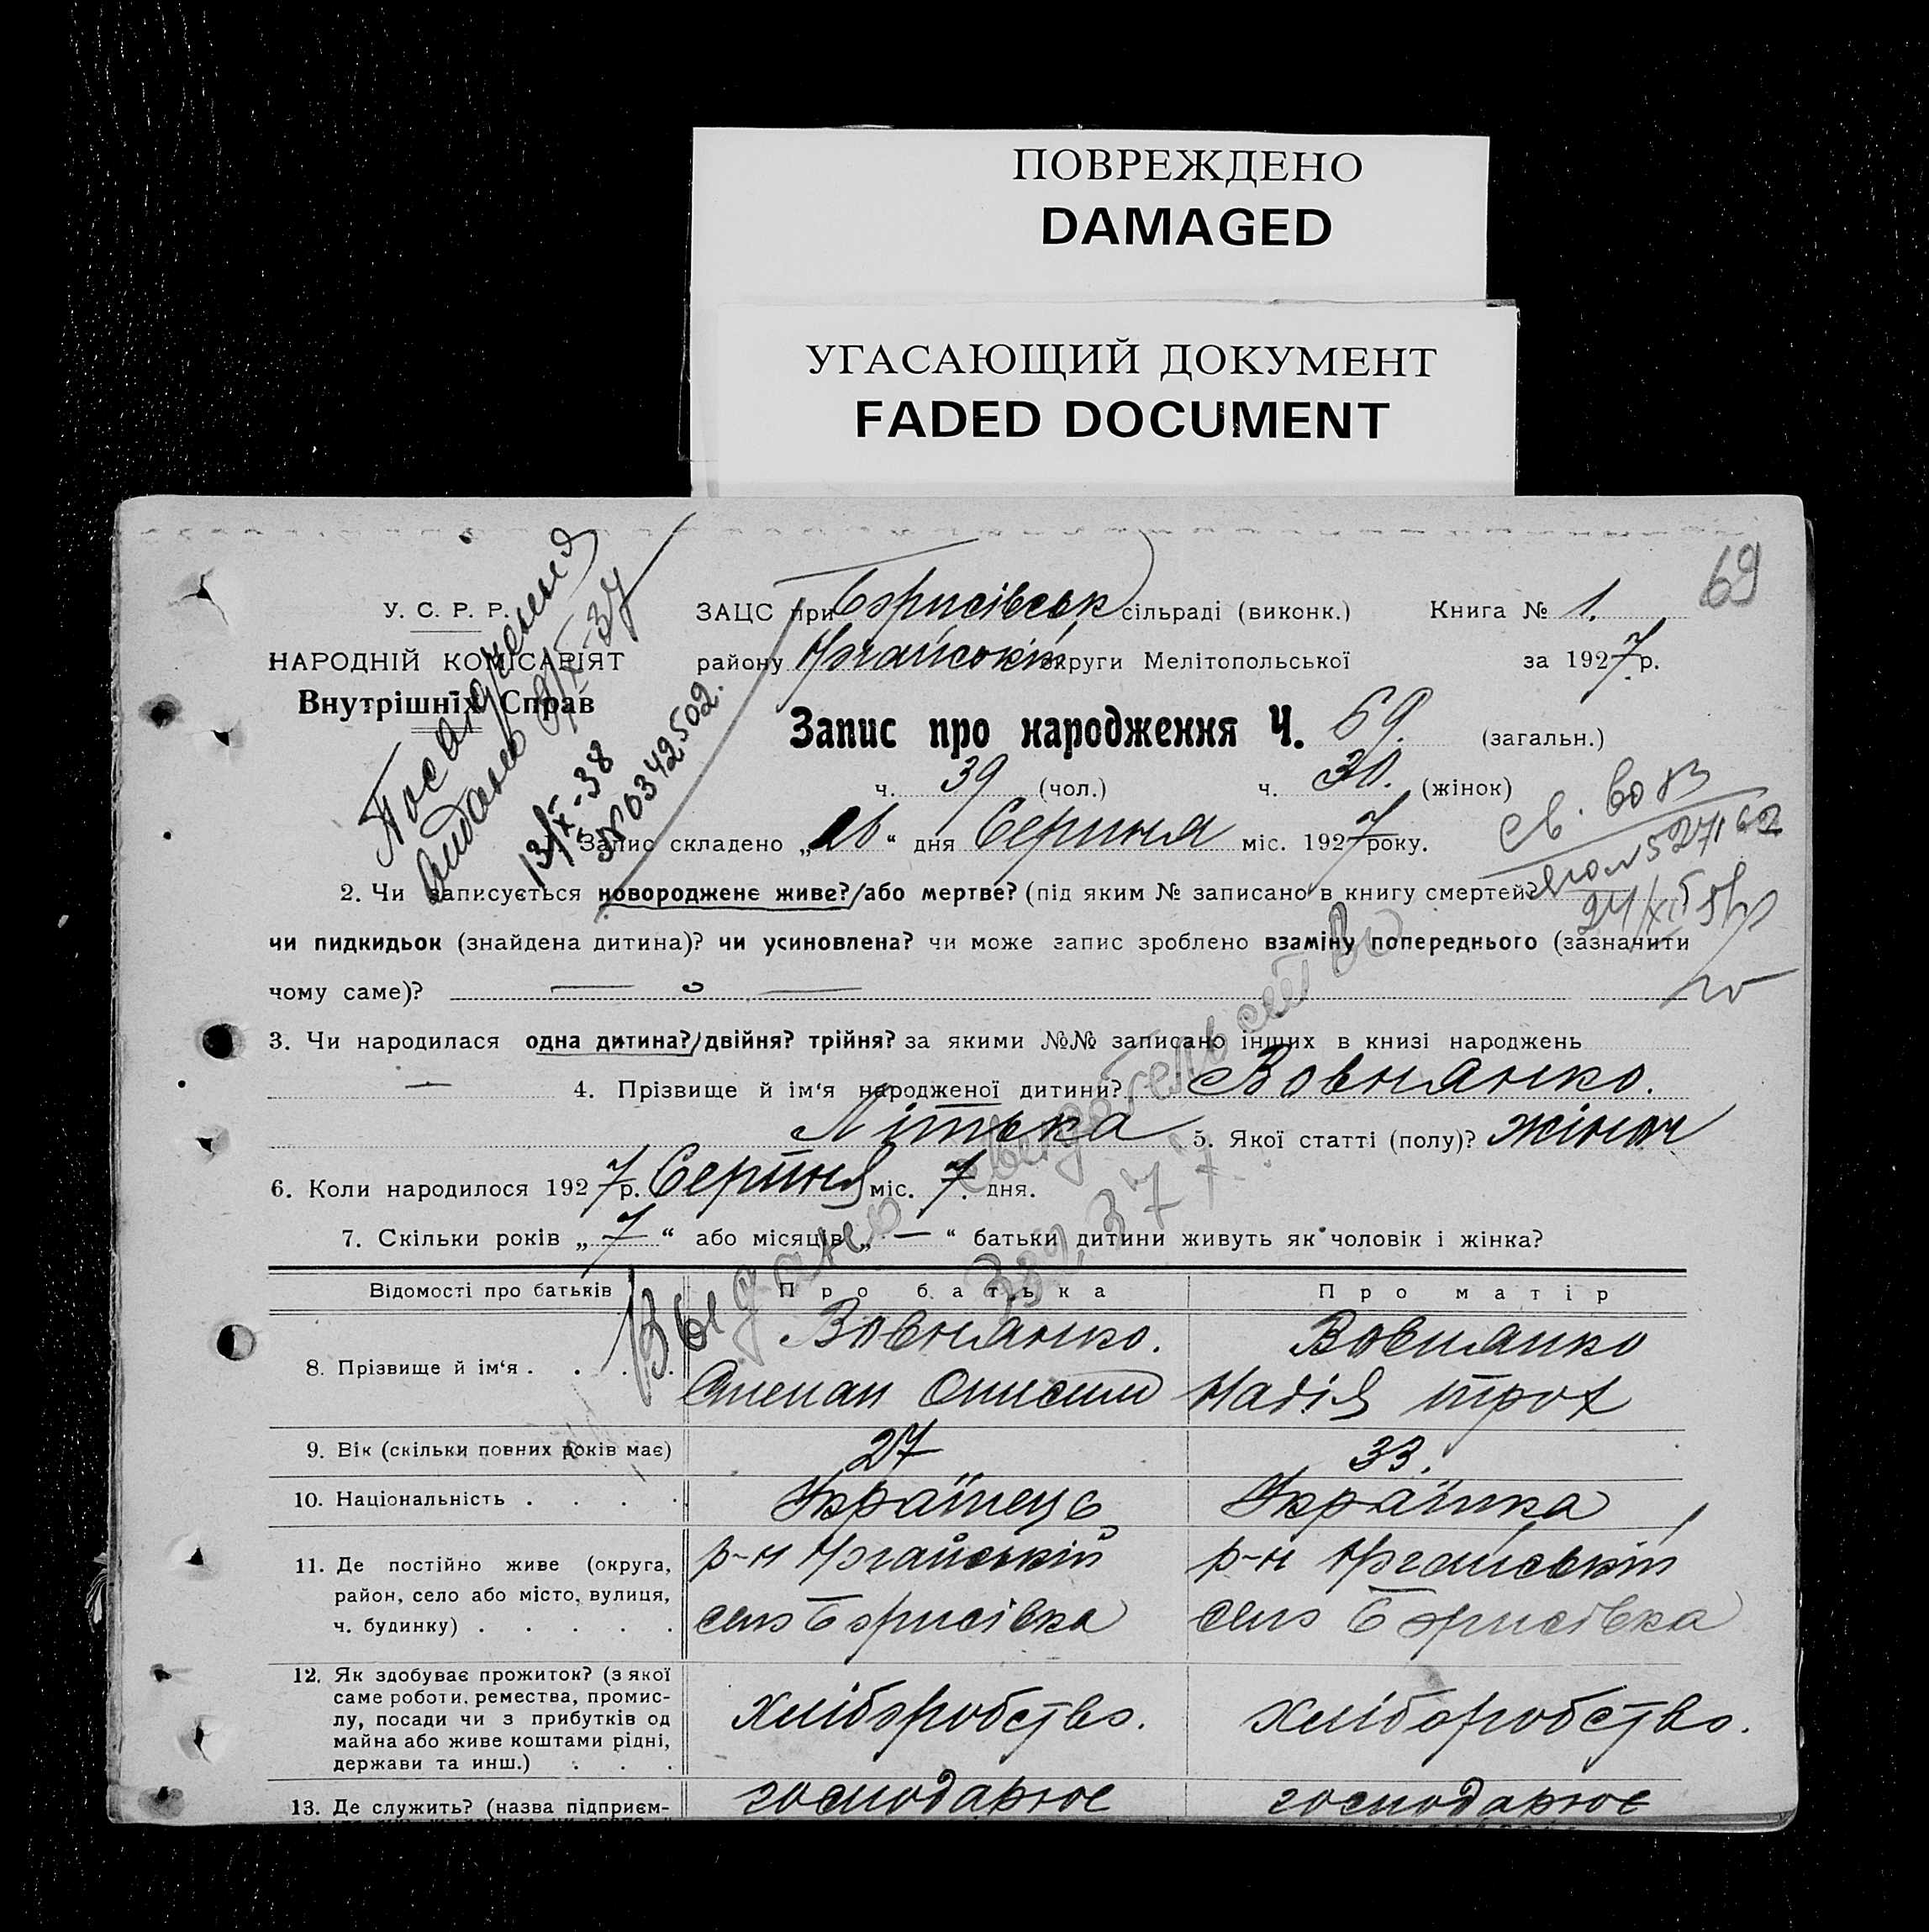 ПОВРЕЖДЕНО
DAMAGED
УГАСАЮЩИЙ ДОКУМЕНТ
FADED DOCUMENT
69
У. С. Р. Р.
НАРОДНІЙ КОМІСАРІЯТ
Внутрішніх Справ
ЗАЦС при Борисівськ сільраді (виконк.) Книга № 1.
району Ногайській округи Мелітопольської за 1927 р.
Запис про народження Ч. 69. (загальн.)
ч. 39 (чол.) ч. 30. (жінок)
Посвидчення
видано
13/X-38
№ 0342502.
Запис складено „ “ дня Серпня міс. 1927 року.
св. во
24/XI 51
2. Чи записується новороджене живе? або мертве? (під яким № записано в книгу смертей?
чи пидкидьок (знайдена дитина)? чи усиновлена? чи може запис зроблено взаміну попереднього (зазначити
чому саме)? — о —
3. Чи народилася одна дитина? двійня? трійня? за якими №№ записано інших в книзі народжень
— 4. Прізвище й ім‘я народженої дитини? Вовнянко.
Літька 5. Якої статті (полу)? жіноч
6. Коли народилося 1927 р. Серпня міс. 7. дня.
7. Скільки років „ 7 “ або місяців „ — “ батьки дитини живуть як чоловік і жінка?
Выдано свидетельство
Відомості про батьків Про батька Про матір
8. Прізвище й ім‘я . . . . Вовнянко. Вовнянко
Степан Онисим Надія трох
9. Вік (скільки повних років має) 27 33.
10. Національність . . . . Українець Українка
11. Де постійно живе (округа, район, село або місто, вулиця, ч. будинку) . . . . .
р-н Ногайській р-н Ногайській
село Борисівка село Борисівка
12. Як здобуває прожиток? (з якої
саме роботи, ремества, промис-
лу, посади чи з прибутків од
майна або живе коштами рідні,
держави та инш.) . . .
хліборобство. хліборобство.
13. Де служить? (назва підприєм- господарює господарює